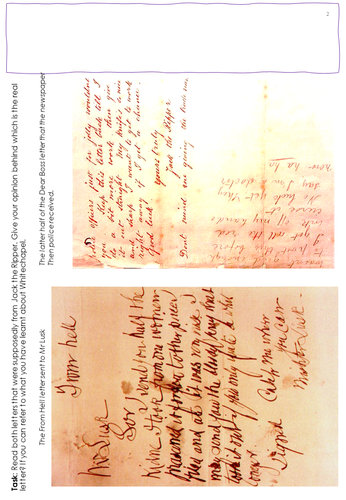 2
Task: Read both letters that were supposedly from Jack the Ripper. Give your opinion behind which is the real
letter! If you can refer to what you have learnt about Whitechapel.
The From Hell letter sent to Mr Lusk
From hell
Mr Lusk
Sor
I send you half the
Kidne I took from one women
prasarved it for you tother piece I
fried and ate it was very nise I
may send you the bloody knif that
took it out if you only wate a whil
longer
signed
Catch me when
you can
Mishter Lusk
The latter half of the Dear Boss letter that the newspaper
Then police received.
officers just for jolly wouldnt
you. Keep this letter back till I
do a bit more work, then give
it out straight. My knife's so nice
and sharp I want to get to work
right away if I get a chance.
Good luck.
yours truly
Jack the Ripper
Dont mind me giving the trade name
wasnt good enough
to post this before
I got all the red
ink off my hands
curse it
No luck yet. They
say I'm a doctor
now ha ha